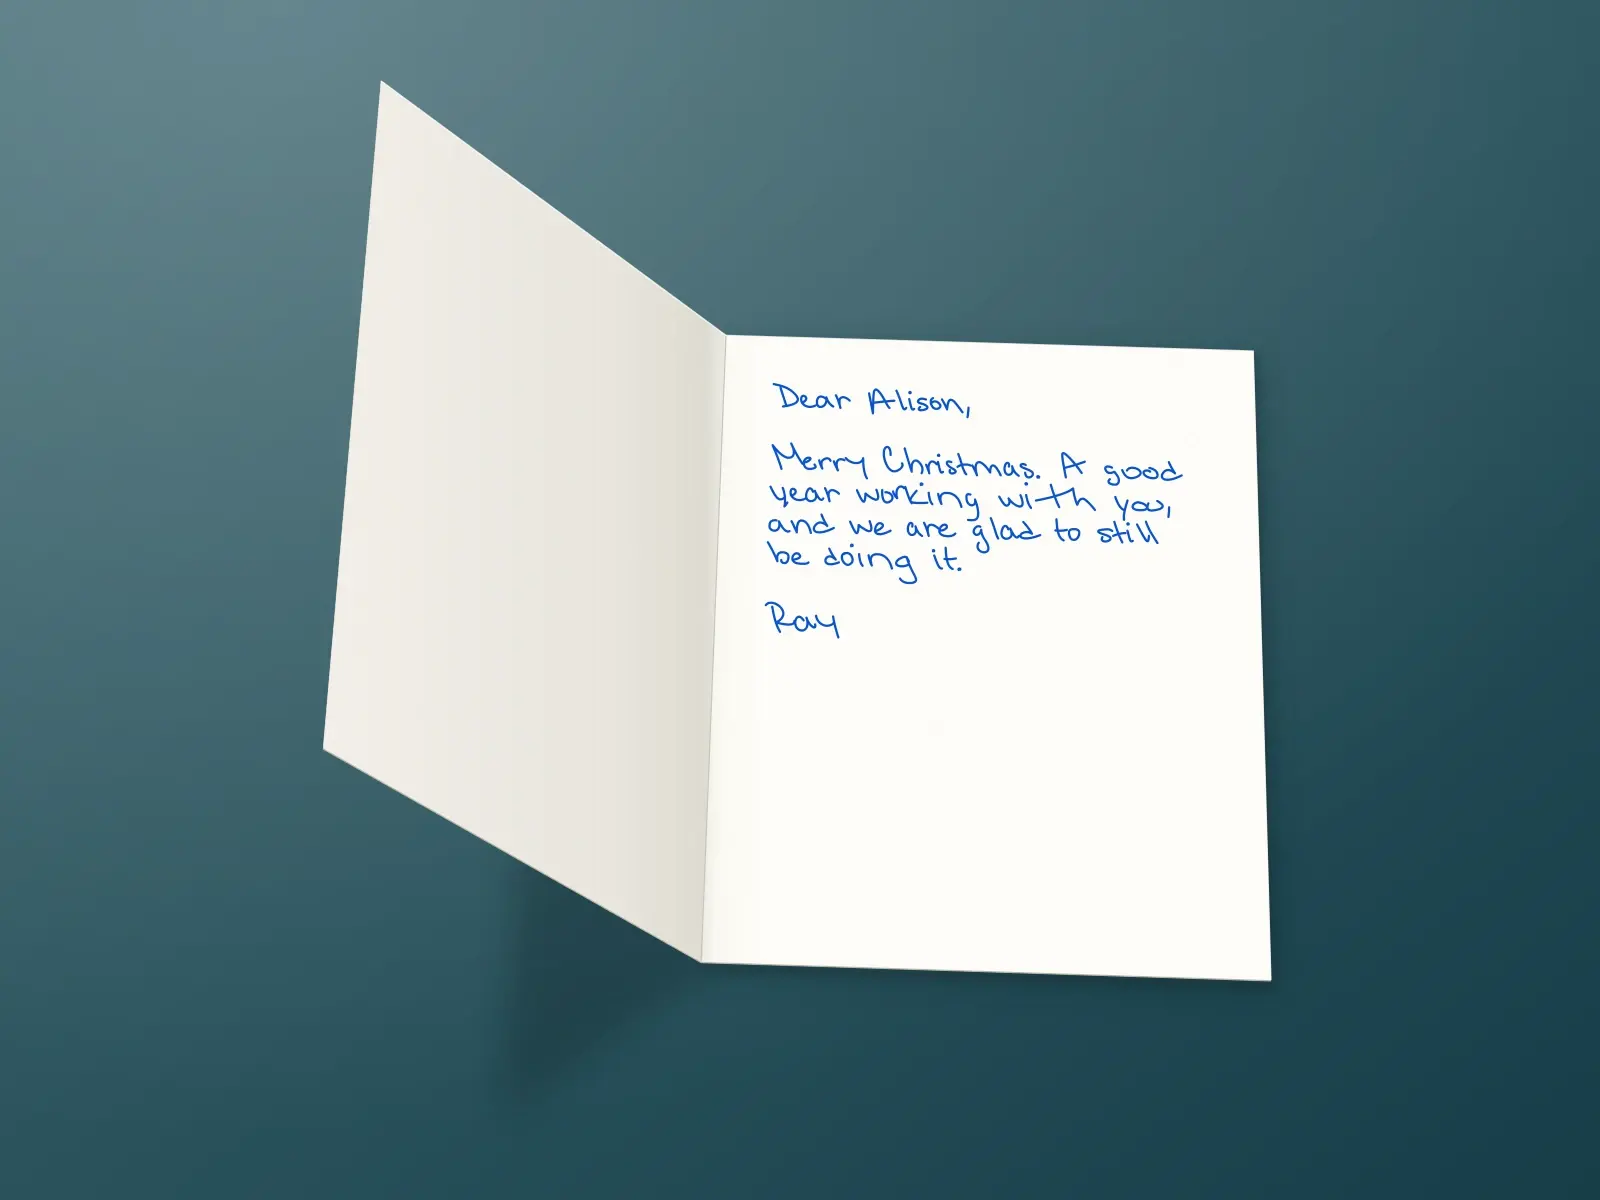 Dear Alison,
Merry Christmas. A good
year working with you,
and we are glad to still
be doing it.
Ray